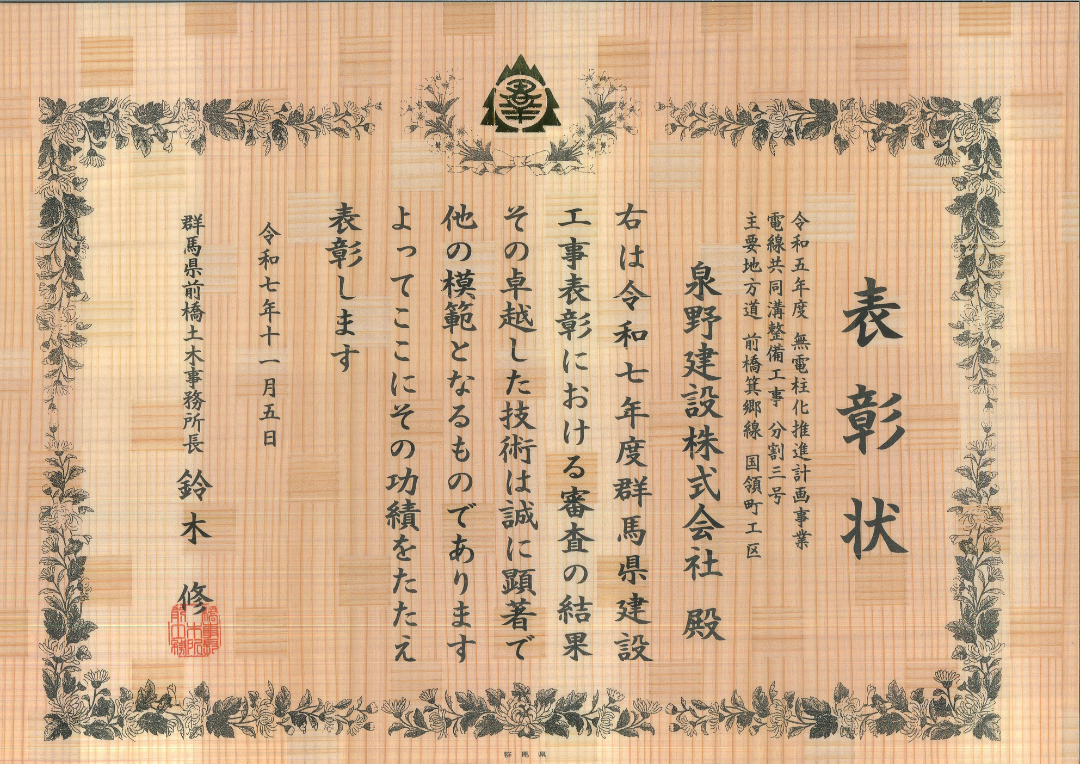 表彰状
令和五年度 無電柱化推進計画事業
電線共同溝整備工事 分割三号
主要地方道 前橋箕郷線 国領町工区
泉野建設株式会社 殿
右は令和七年度群馬県建設
工事表彰における審査の結果
その卓越した技術は誠に顕著で
他の模範となるものであります
よってここにその功績をたたえ
表彰します
令和七年十一月五日
群馬県前橋土木事務所長 鈴木 修
群馬県